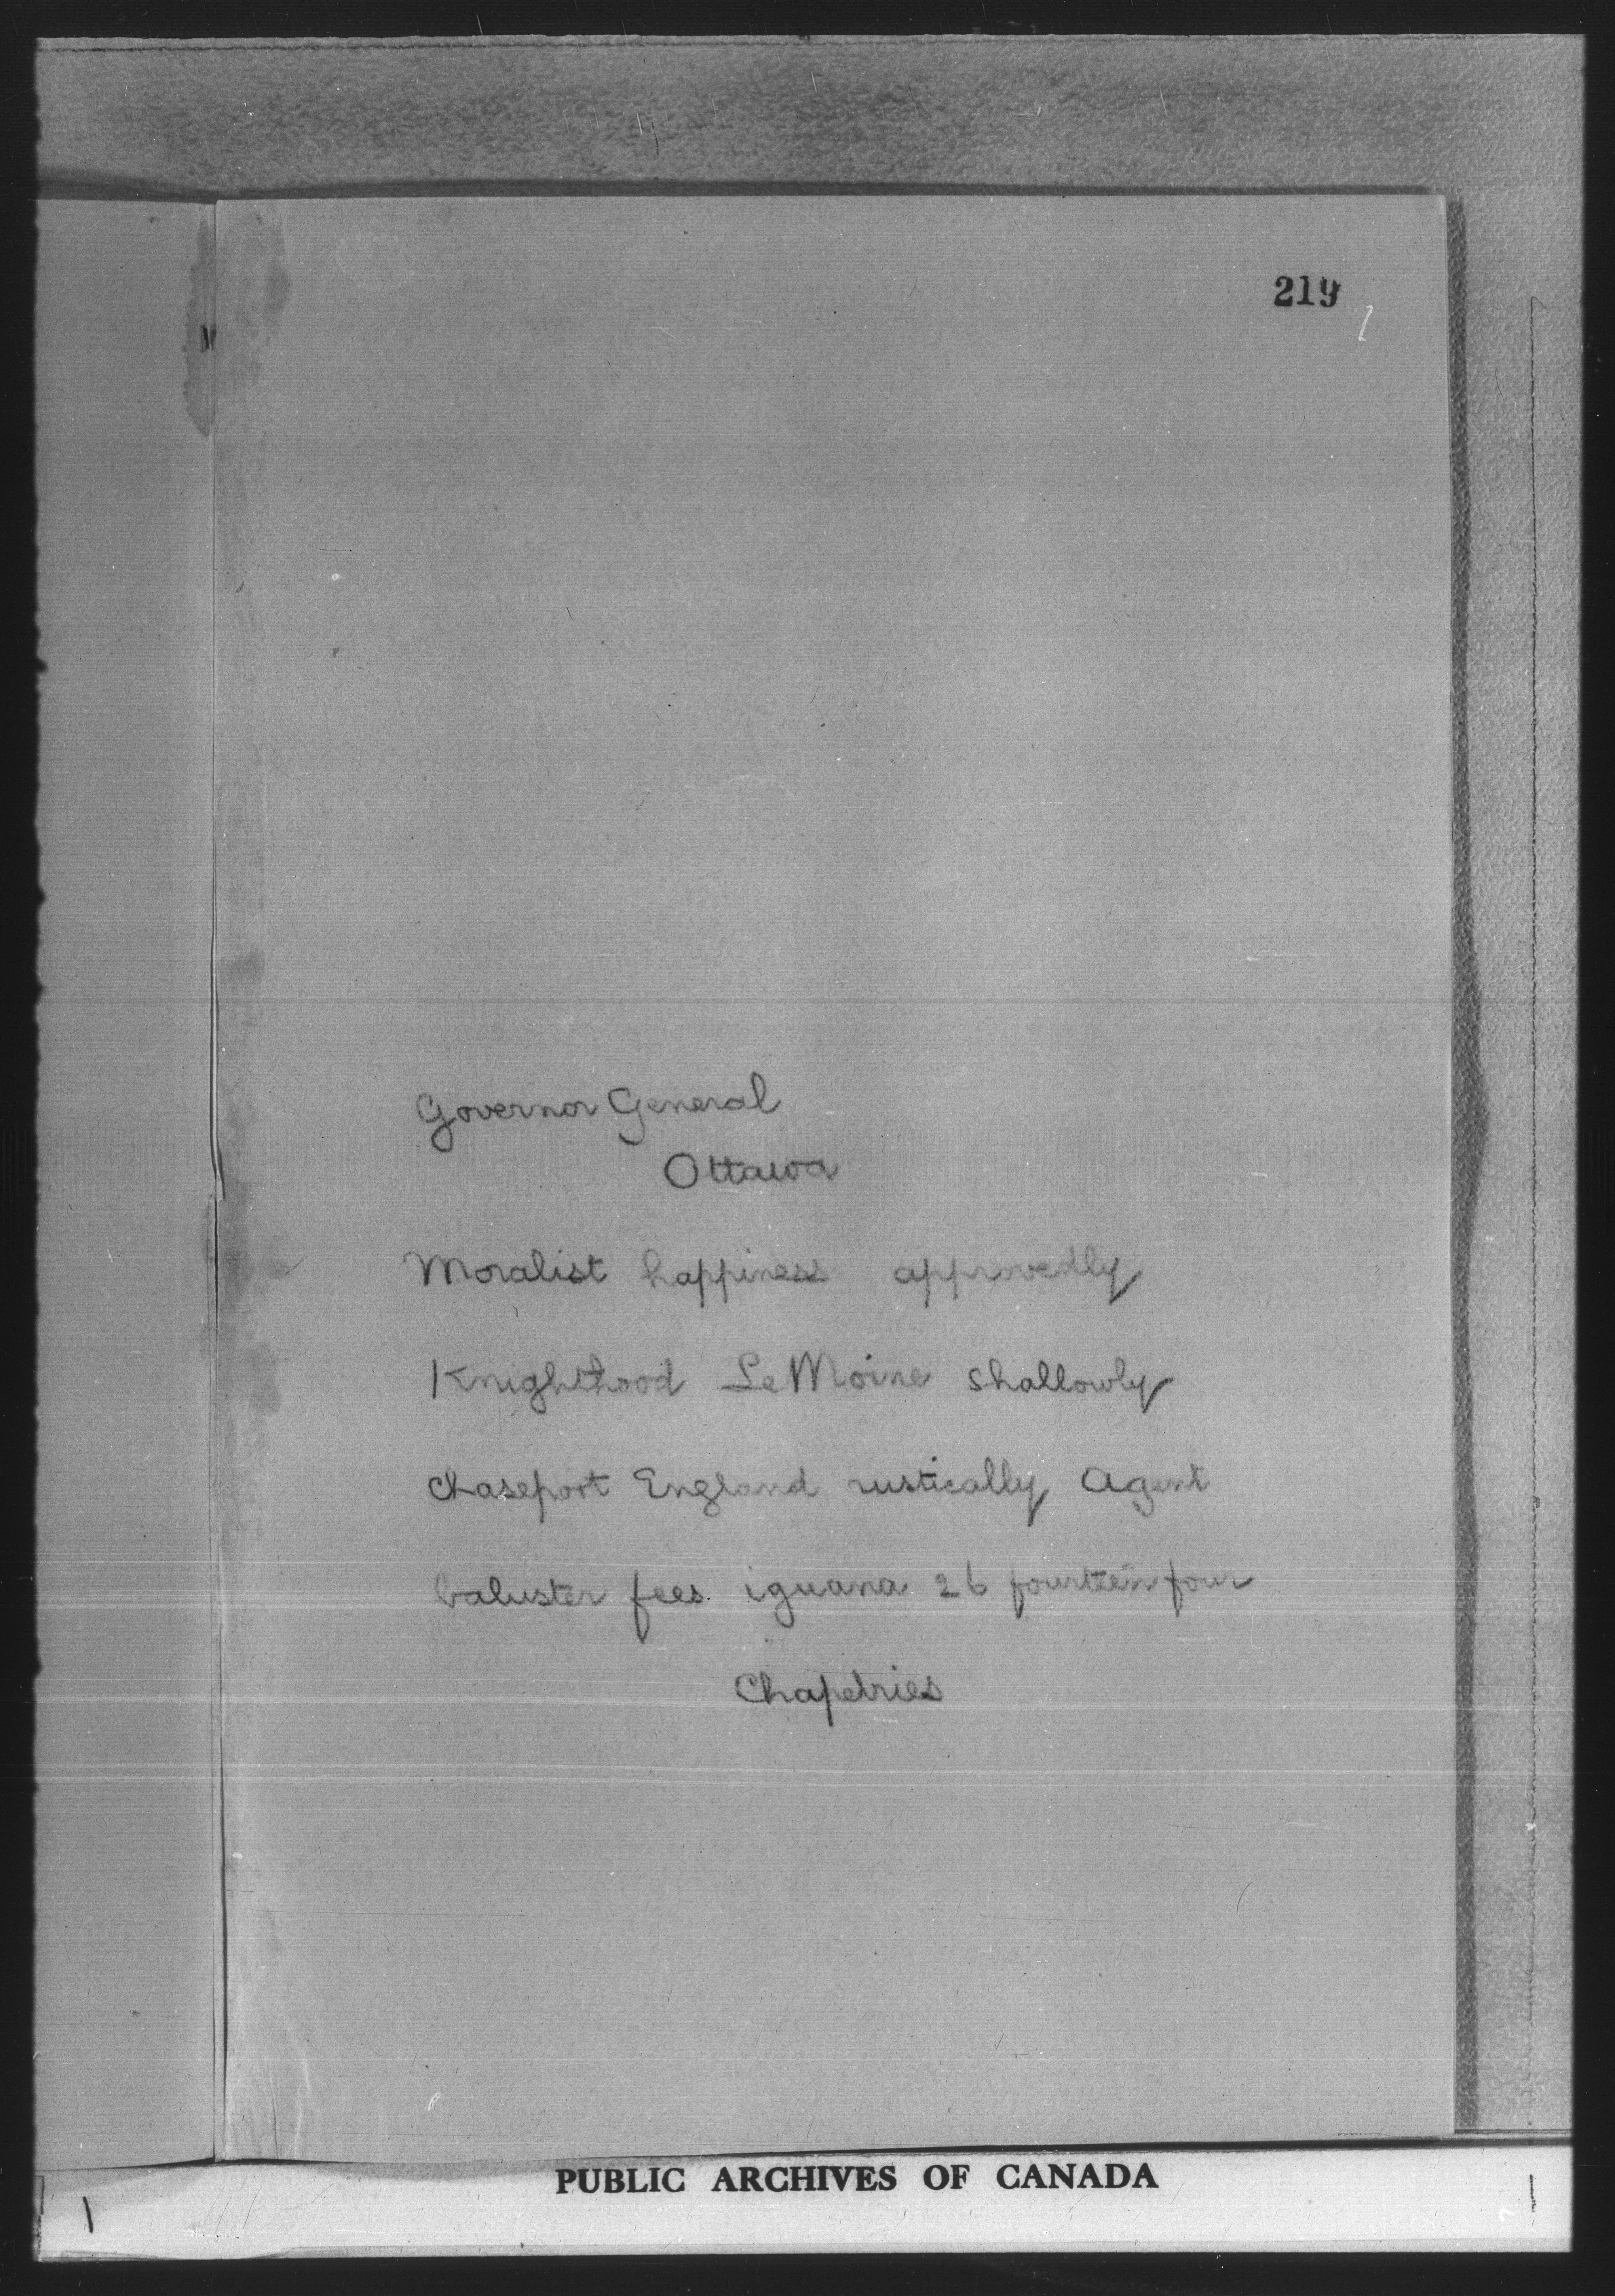 219
Governor General
Ottawa
Moralist happiness approvedly
Knighthood LeMoine shallowly
Chaseport England rustically Agent
baluster fees. iguana 26 fourteen four
Chapelries
PUBLIC ARCHIVES OF CANADA